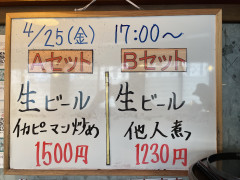 4/25(金) 17:00〜
Aセット
生ビール
イカピーマン炒め
1500円
Bセット
生ビール
他人煮
1230円